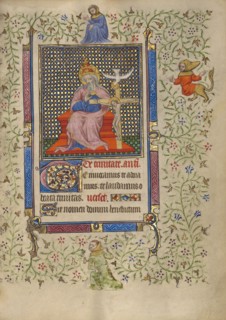 De trinitate. anti
Te invocamus te adora
mus. te laudamus o
beata trinitas.
Sit nomen domini benedictum